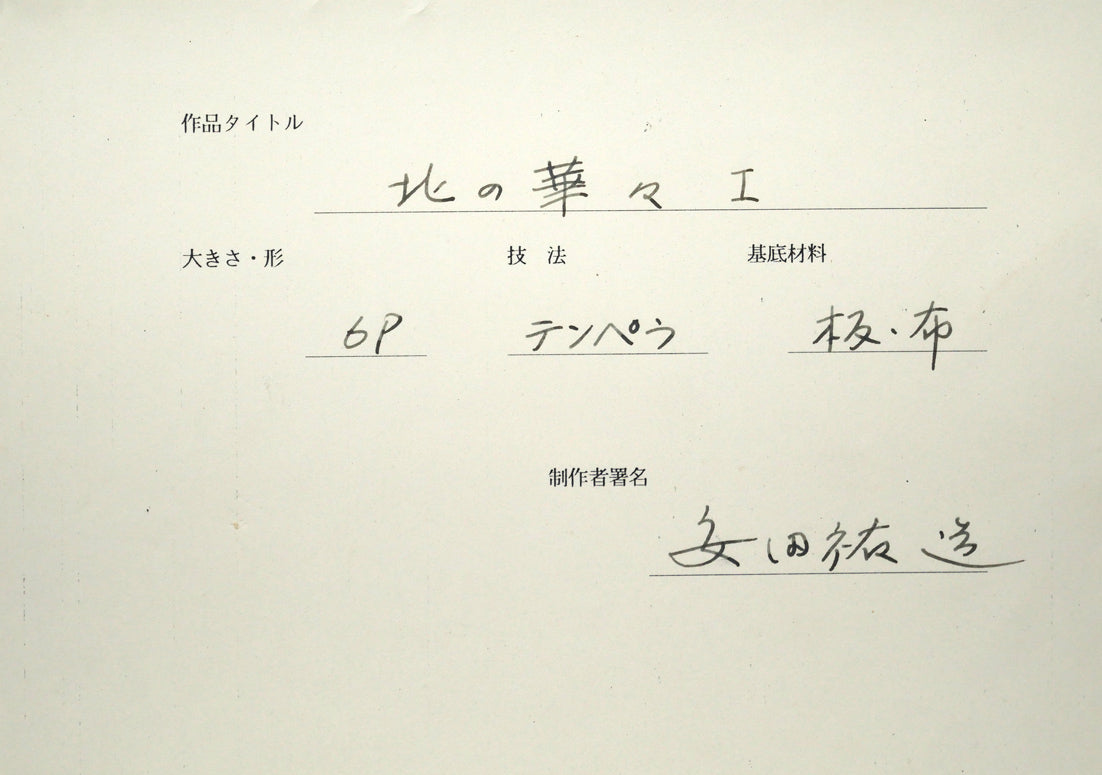 作品タイトル
北の華々 I
大きさ・形 技 法 基底材料
6P テンペラ 板・布
制作者署名
安田祐造